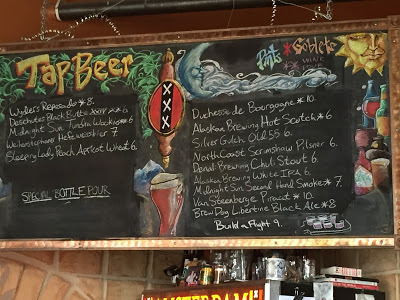 Tap Beer
Pint * Goblet
* WINE POUR
Wyders Reposado * 8.
Deschutes Black Butte XXVII * 6
Midnight Sun Tundra Wookie 6
Weihenstephaner Hefeweissbier 7
Sleeping Lady Peach Apricot Wheat 6.
SPECIAL BOTTLE POUR
XXX
Duchesse de Bourgogne * 10.
Alaskan Brewing Hot Scotch * 6
Silver Gulch Old 55 6.
North Coast Scrimshaw Pilsner 6.
Denali Brewing Chuli Stout 6.
Alaskan Brewing White IPA 6.
Midnight Sun Second Hand Smoke * 7.
Van Steenberge Piraat * 10.
Brew Dog Libertine Black Ale * 8
Build a Flight 9.
AMSTERDAM